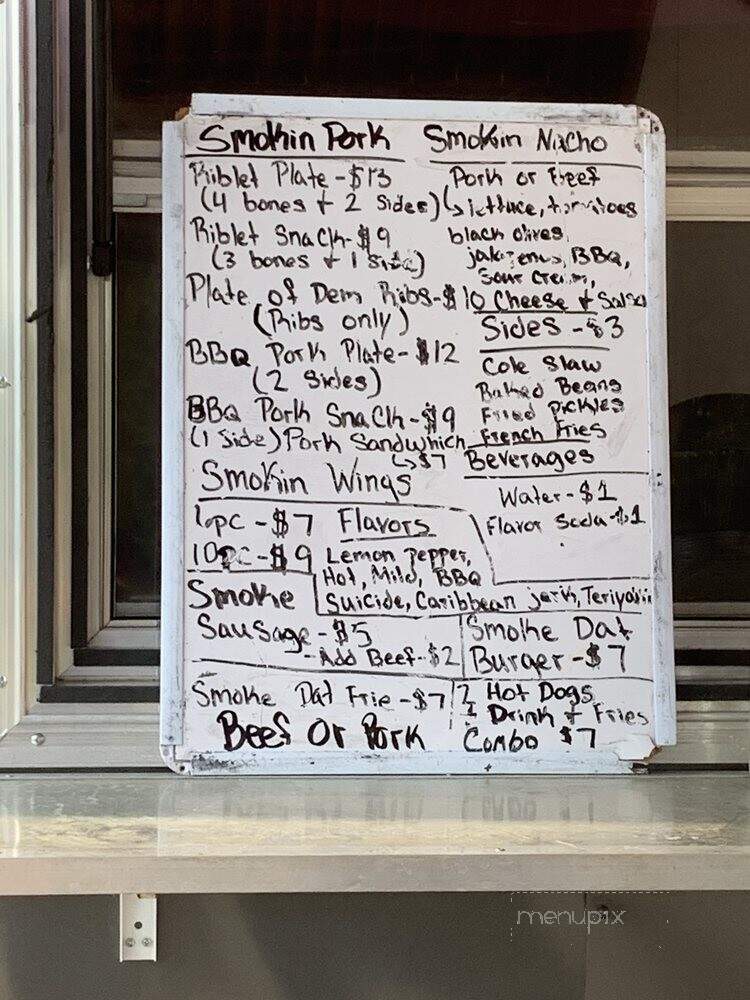 Smokin Pork
Riblet Plate - $13
(4 bones + 2 sides)
Riblet Snack - $9
(3 bones + 1 side)
Plate of Dem Ribs - $10
(Ribs only)
BBQ Pork Plate - $12
(2 Sides)
BBQ Pork Snack - $9
(1 Side) Pork Sandwhich
↳ $7
Smokin Nacho
Pork or Beef
↳ lettuce, tomatoes
black olives,
jalapenos, BBQ,
Sour Cream,
Cheese + Salsa
Sides - $3
Cole Slaw
Baked Beans
Fried pickles
French Fries
Beverages
Water - $1
Flavor Soda - $1
Smokin Wings
pc - $7
10pc - $9
Flavors
Lemon pepper,
Hot, Mild, BBQ
Suicide, Caribbean jerk, Teriyaki
Smoke
Sausage - $5
- Add Beef - $2
Smoke Dat
Burger - $7
Smoke Dat Frie - $7
Beef Or Pork
2 Hot Dogs
Drink + Fries
Combo $7
menupix